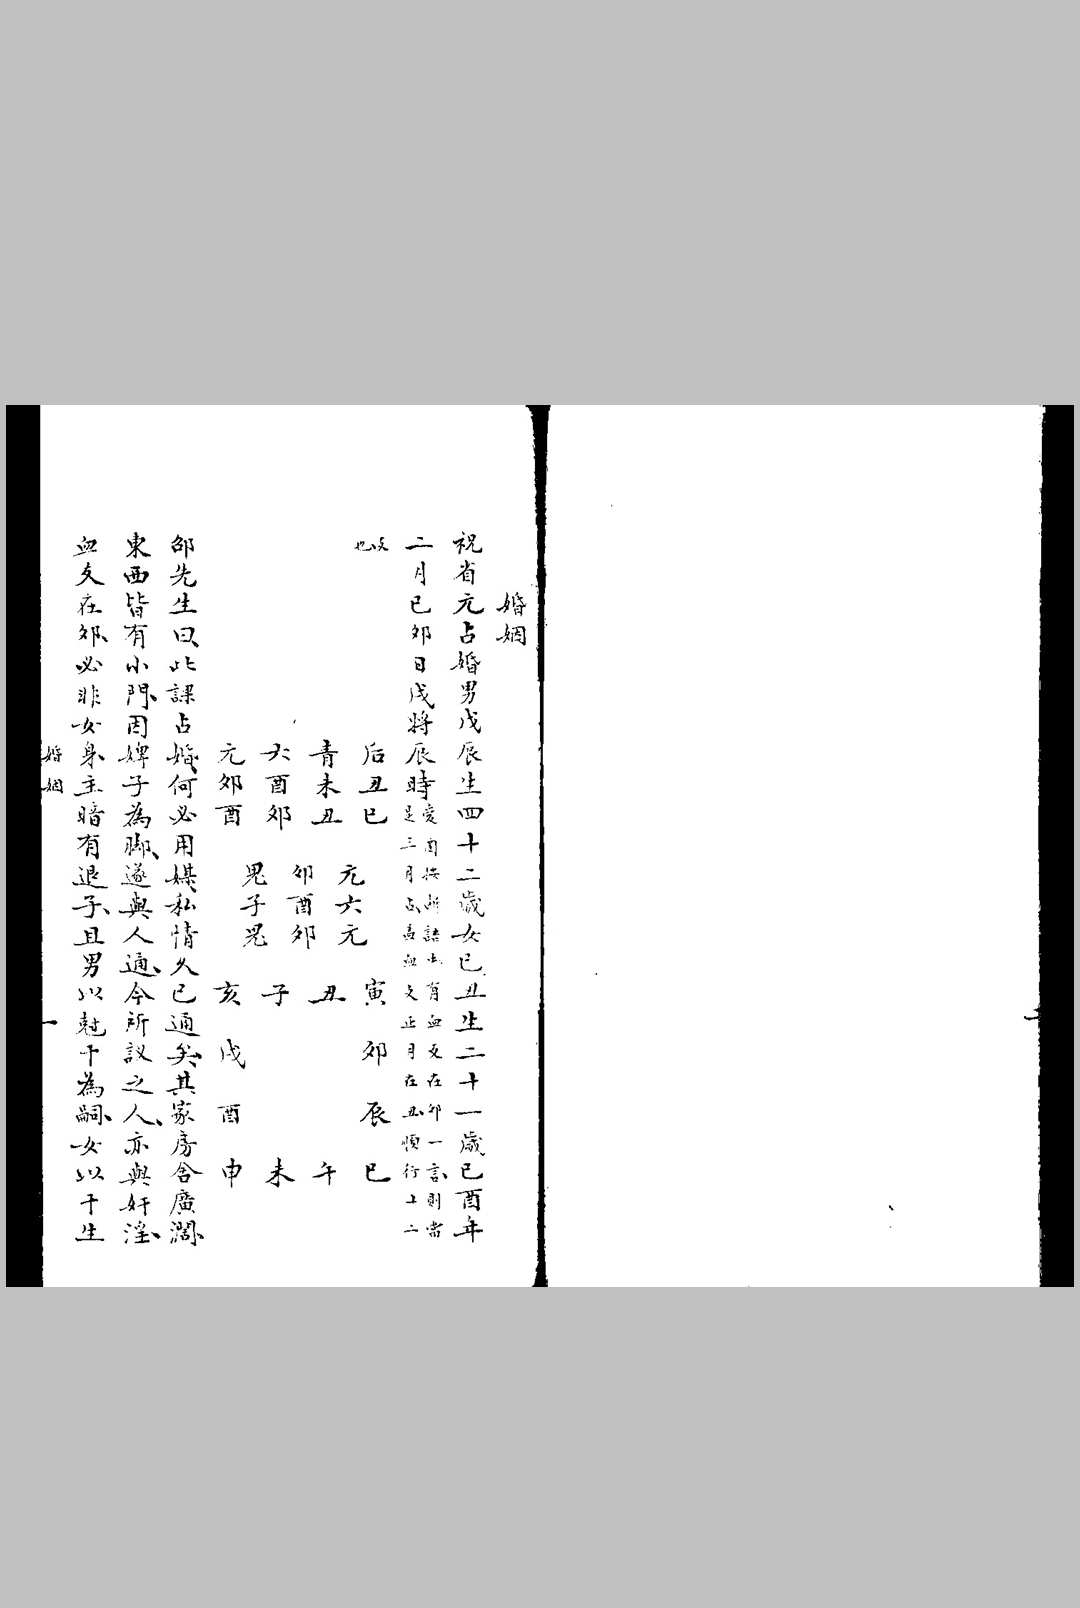 婚姻
祝省元占婚男戊辰生四十二歲女己丑生二十一歲己酉年
二月己卯日戌將辰時
愛函按所語止有血支在卯一言則當
是三月占蓋血支正月在丑順行十二
支也
后 青 六 元
丑 未 酉 卯
巳 丑 卯 酉
元 卯 鬼
六 酉 子
元 卯 鬼
寅 丑 子 亥
卯 戌
辰 酉
巳 午 未 申
邵先生曰此課占婚何必用媒私情久已通矣其家房舍廣濶
東西皆有小門因婢子為脚遂與人通今所議之人亦與奸淫
血支在卯必非女身主暗有退子且男以尅干為嗣女以干生
婚姻
一